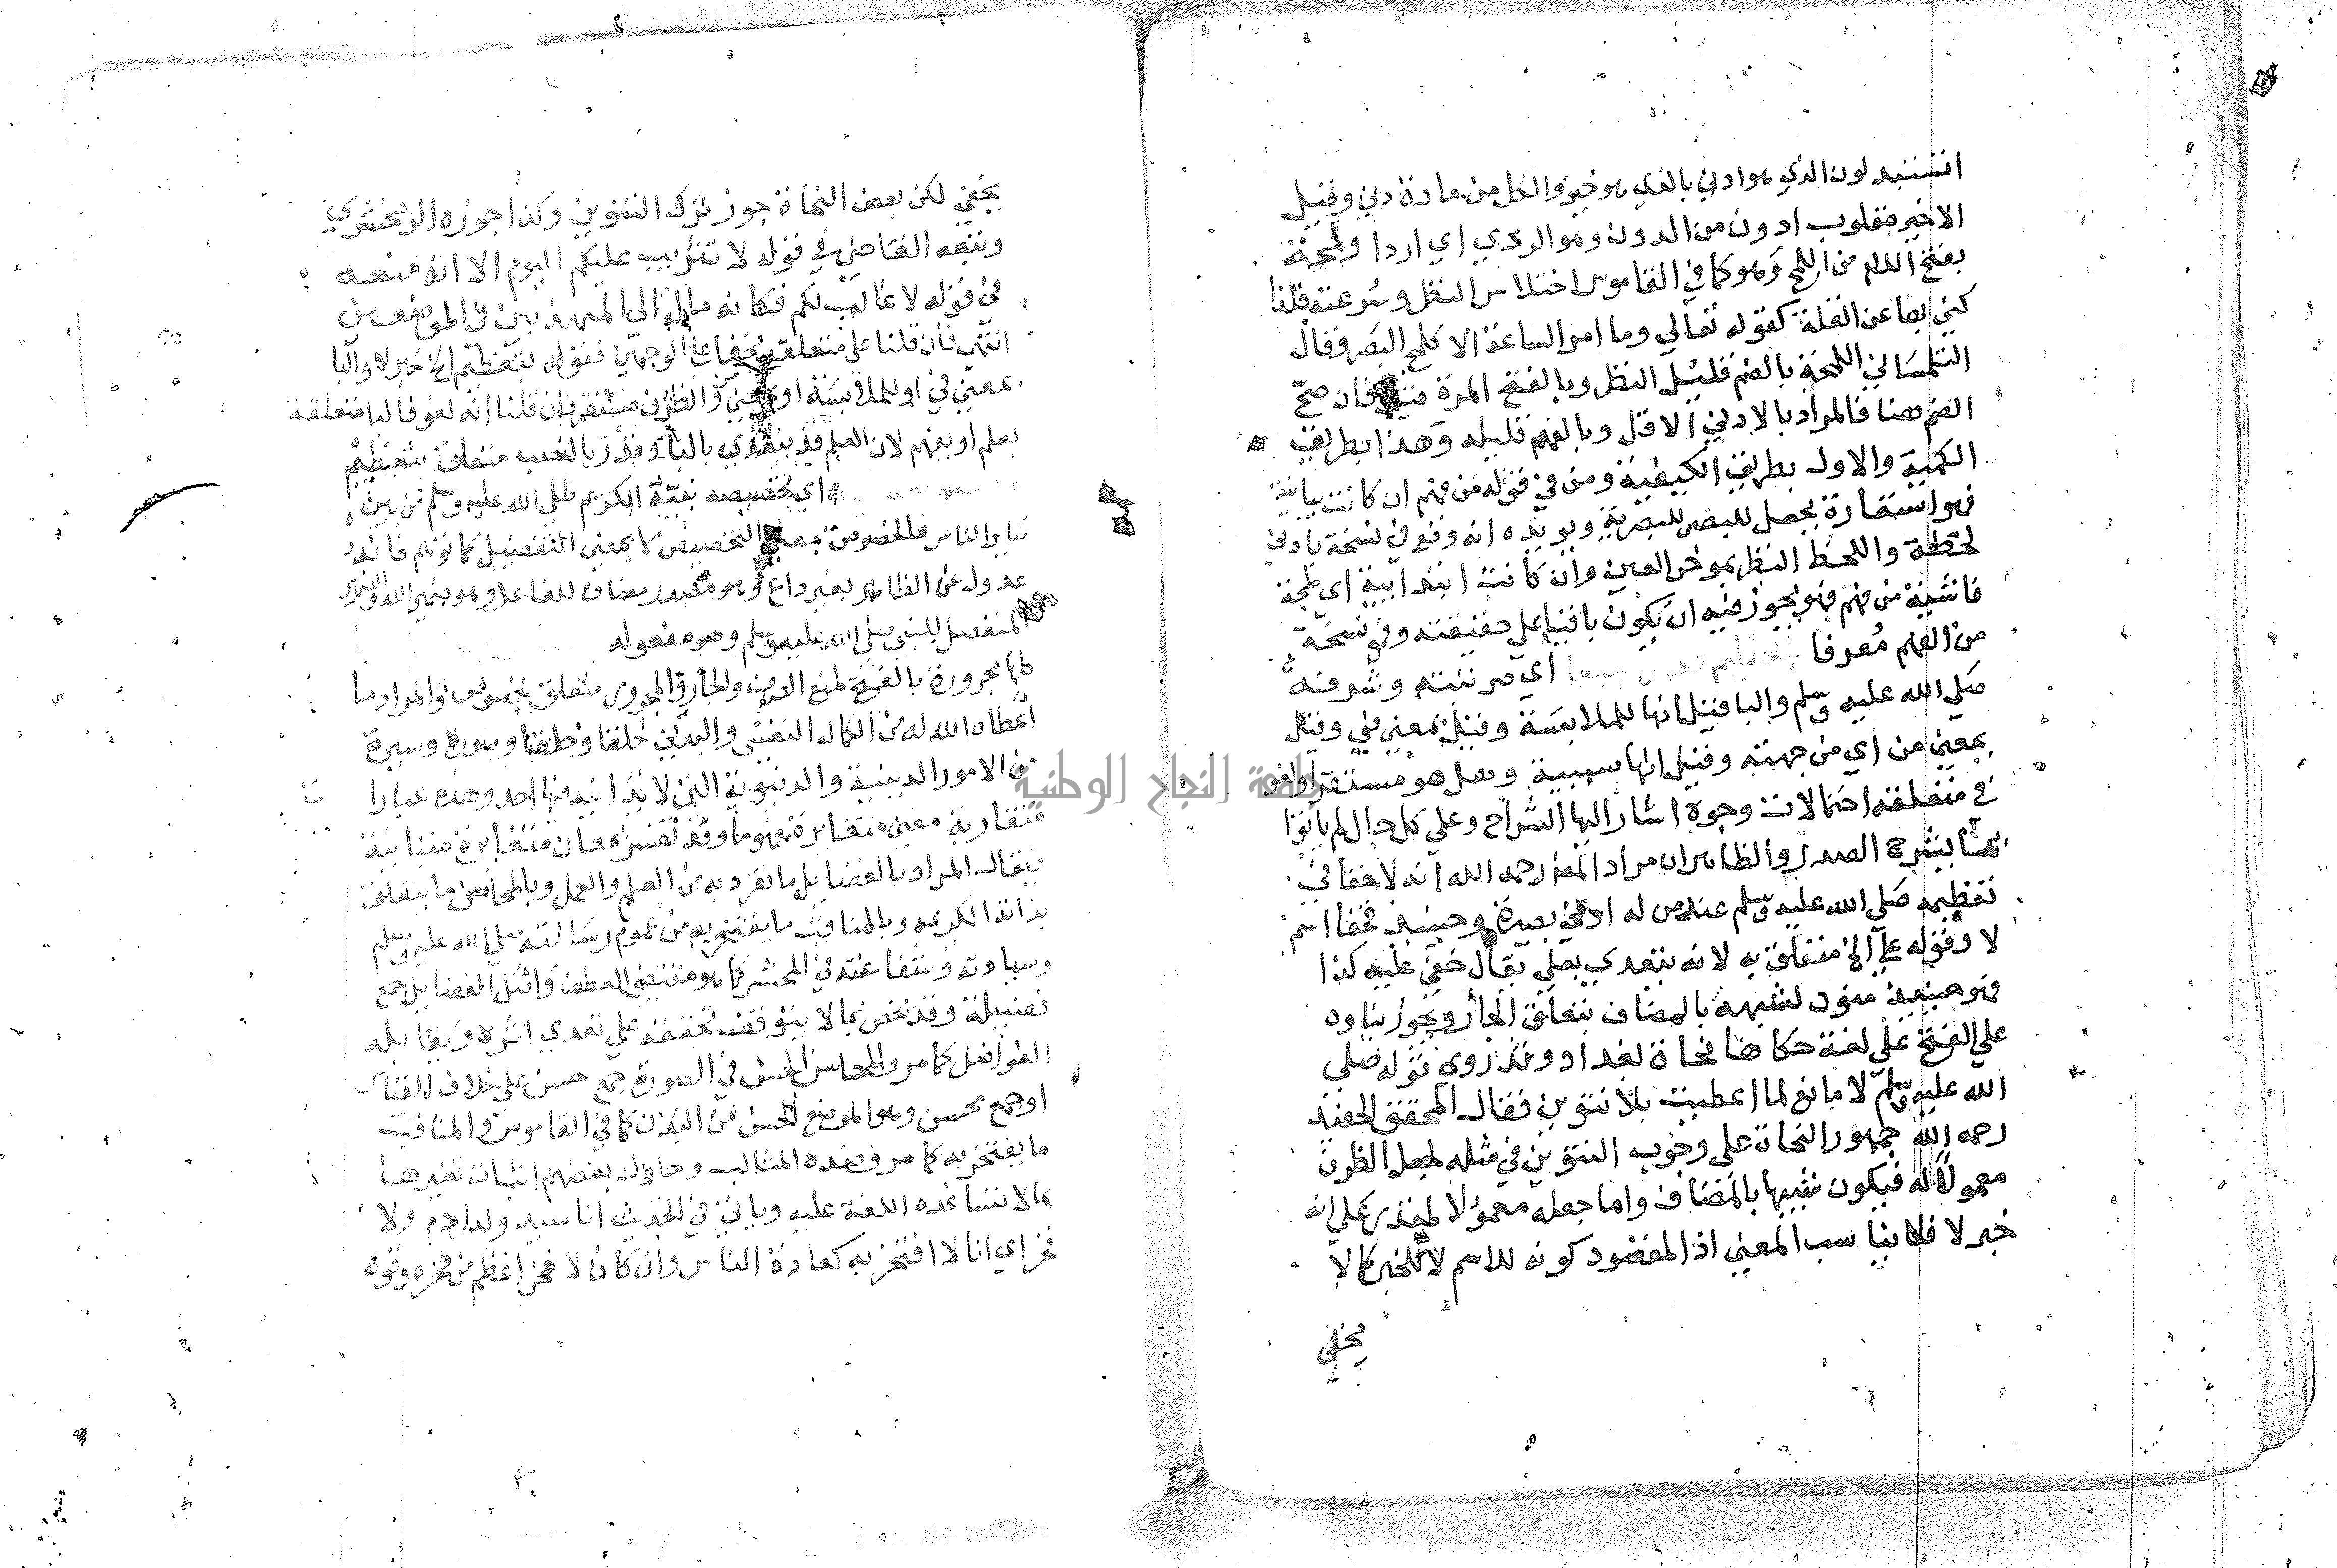 اتستبدلون الذي هو ادني بالذي هو خير والكل من مادة دني وقيل
الاخير مقلوب ادون من الدون وهو الردي اي اردا ولمحة
بفتح اللام من اللمح وهو كما في القاموس اختلاس النظر وسرعته فلذا
كني بها عن القلة كقوله تعالي وما امر الساعة الا كلمح البصر وقال
التلمساني اللمحة بالضم قليل النظر وبالفتح المرة منه فان صح
الضم هنا فالمراد بالادني الاقل وبالفهم قليله وهذا بطريق
الكمية والاول بطريق الكيفية ومن في قوله من فهم ان كانت بيانية
فهو استعارة بجعل للبصر للبصيرة ويويده انه وقع في نسخة بادني
لحظة واللحظ النظر بموخر العين وان كانت ابتدائية اي لمحة
ناشية من فهم فهو يجوز فيه ان يكون باقيا علي حقيقته وفي نسخة
من الفهم معرفا اي مرتبته وشرفه
صلي الله عليه وسلم والبا قيل انها للملابسة وقيل بمعني في وقيل
بمعني من اي من جهته وقيل انها سببية وهل هو مستقر او لغو
في متعلقه احتمالات وجوه اشار اليها الشراح وعلي كل حال لم ياتوا
بما يشرح الصدر والظاهر ان مراد المص رحمه الله انه لا خفا في
تعظيمه صلي الله عليه وسلم عند من له ادني بصيرة وحينيذ فخفا اسم
لا وقوله علي الخ متعلق به لانه يتعدي بعلي يقال خفي عليه كذا
وهو حينيذ منون لشبهه بالمضاف بتعلق الجار ويجوز بناوه
علي الفتح علي لغة حكاها نحاة بغداد وقد روي قوله صلي
الله عليه وسلم لا مانع لما اعطيت بلا تنوين فقال المحقق الحفيد
رحمه الله جمهور النحاة علي وجوب التنوين في مثله لجعل الظرف
معمولا له فيكون شبيها بالمضاف واما جعله معمولا لمقدر علي انه
خبر لا فلا يناسب المعني اذ المقصود كونه للاسم لا للخبر كما لا
يخفي
يخفي لكن بعض النحاة جوز ترك التنوين وكذا جوزه الزمخشري
وتبعه القاضي في قوله لا تثريب عليكم اليوم الا انه منعه
في قوله لا غالب لكم فكانه مال الي المذهبين في الموضعين
انتهي فان قلنا علي متعلقه بخفا علي الوجهين فقوله بتعظيم الخ خبر لا والبا
بمعني في او للملابسة او والظرف مستقر فان قلنا انه لغو فالبا متعلقة
بعلم او بفهم لان العلم قد يتعدي بالبا وقدر بالنصب متعلق بتعظيم
اي تخصيصه نبيه الكريم صلي الله عليه وسلم من بين
ساير الناس فالخصوص بمعني التخصيص لا بمعني التفضيل كما توهم فانه
عدول عن الظاهر بغير داع وهو مصدر مضاف للفاعل وهو ضمير الله والضمير
المتصل للنبي صلي الله عليه وسلم وهو مفعوله
مجرورة بالفتحة لمنع الصرف والجار والمجرور متعلق بخصوص والمراد ما
اعطاه الله له من الكمال النفسي والبدني خلقا وخلقا وصورة وسيرة
من الامور الدينية والدنيوية التي لا يدانيه فيها احد وهذه عبارات
متقاربة معني متغايرة مفهوما وقد تفسر بمعان متغايرة متباينة
فيقال المراد بالفضايل ما تفرد به من العلم والعمل وبالمحاسن ما يتعلق
بذاته الكريمة وبالمناقب ما يفتخر به من عموم رسالته صلي الله عليه وسلم
وسيادته وشفاعته في المحشر كما هو مقتضي العطف واقل الفضايل جمع
فضيلة وقد تخص بما لا يتوقف تحققه علي تعدي اثره ويقابله
الفواضل كما مر والمحاسن الحسن في الصورة جمع حسن علي خلاف القياس
او جمع محسن وهو الموضع الحسن من البدن كما في القاموس والمناقب
ما يفتخر به كما مر وضده المثالب وحاول بعضهم اثبات تغيرها
بما لا تساعده اللغة عليه وياتي في الحديث انا سيد ولد ادم ولا
فخر اي انا لا افتخر به كعادة الناس وان كان لا فخر اعظم من فخره وقوله
جامعة النجاح الوطنية